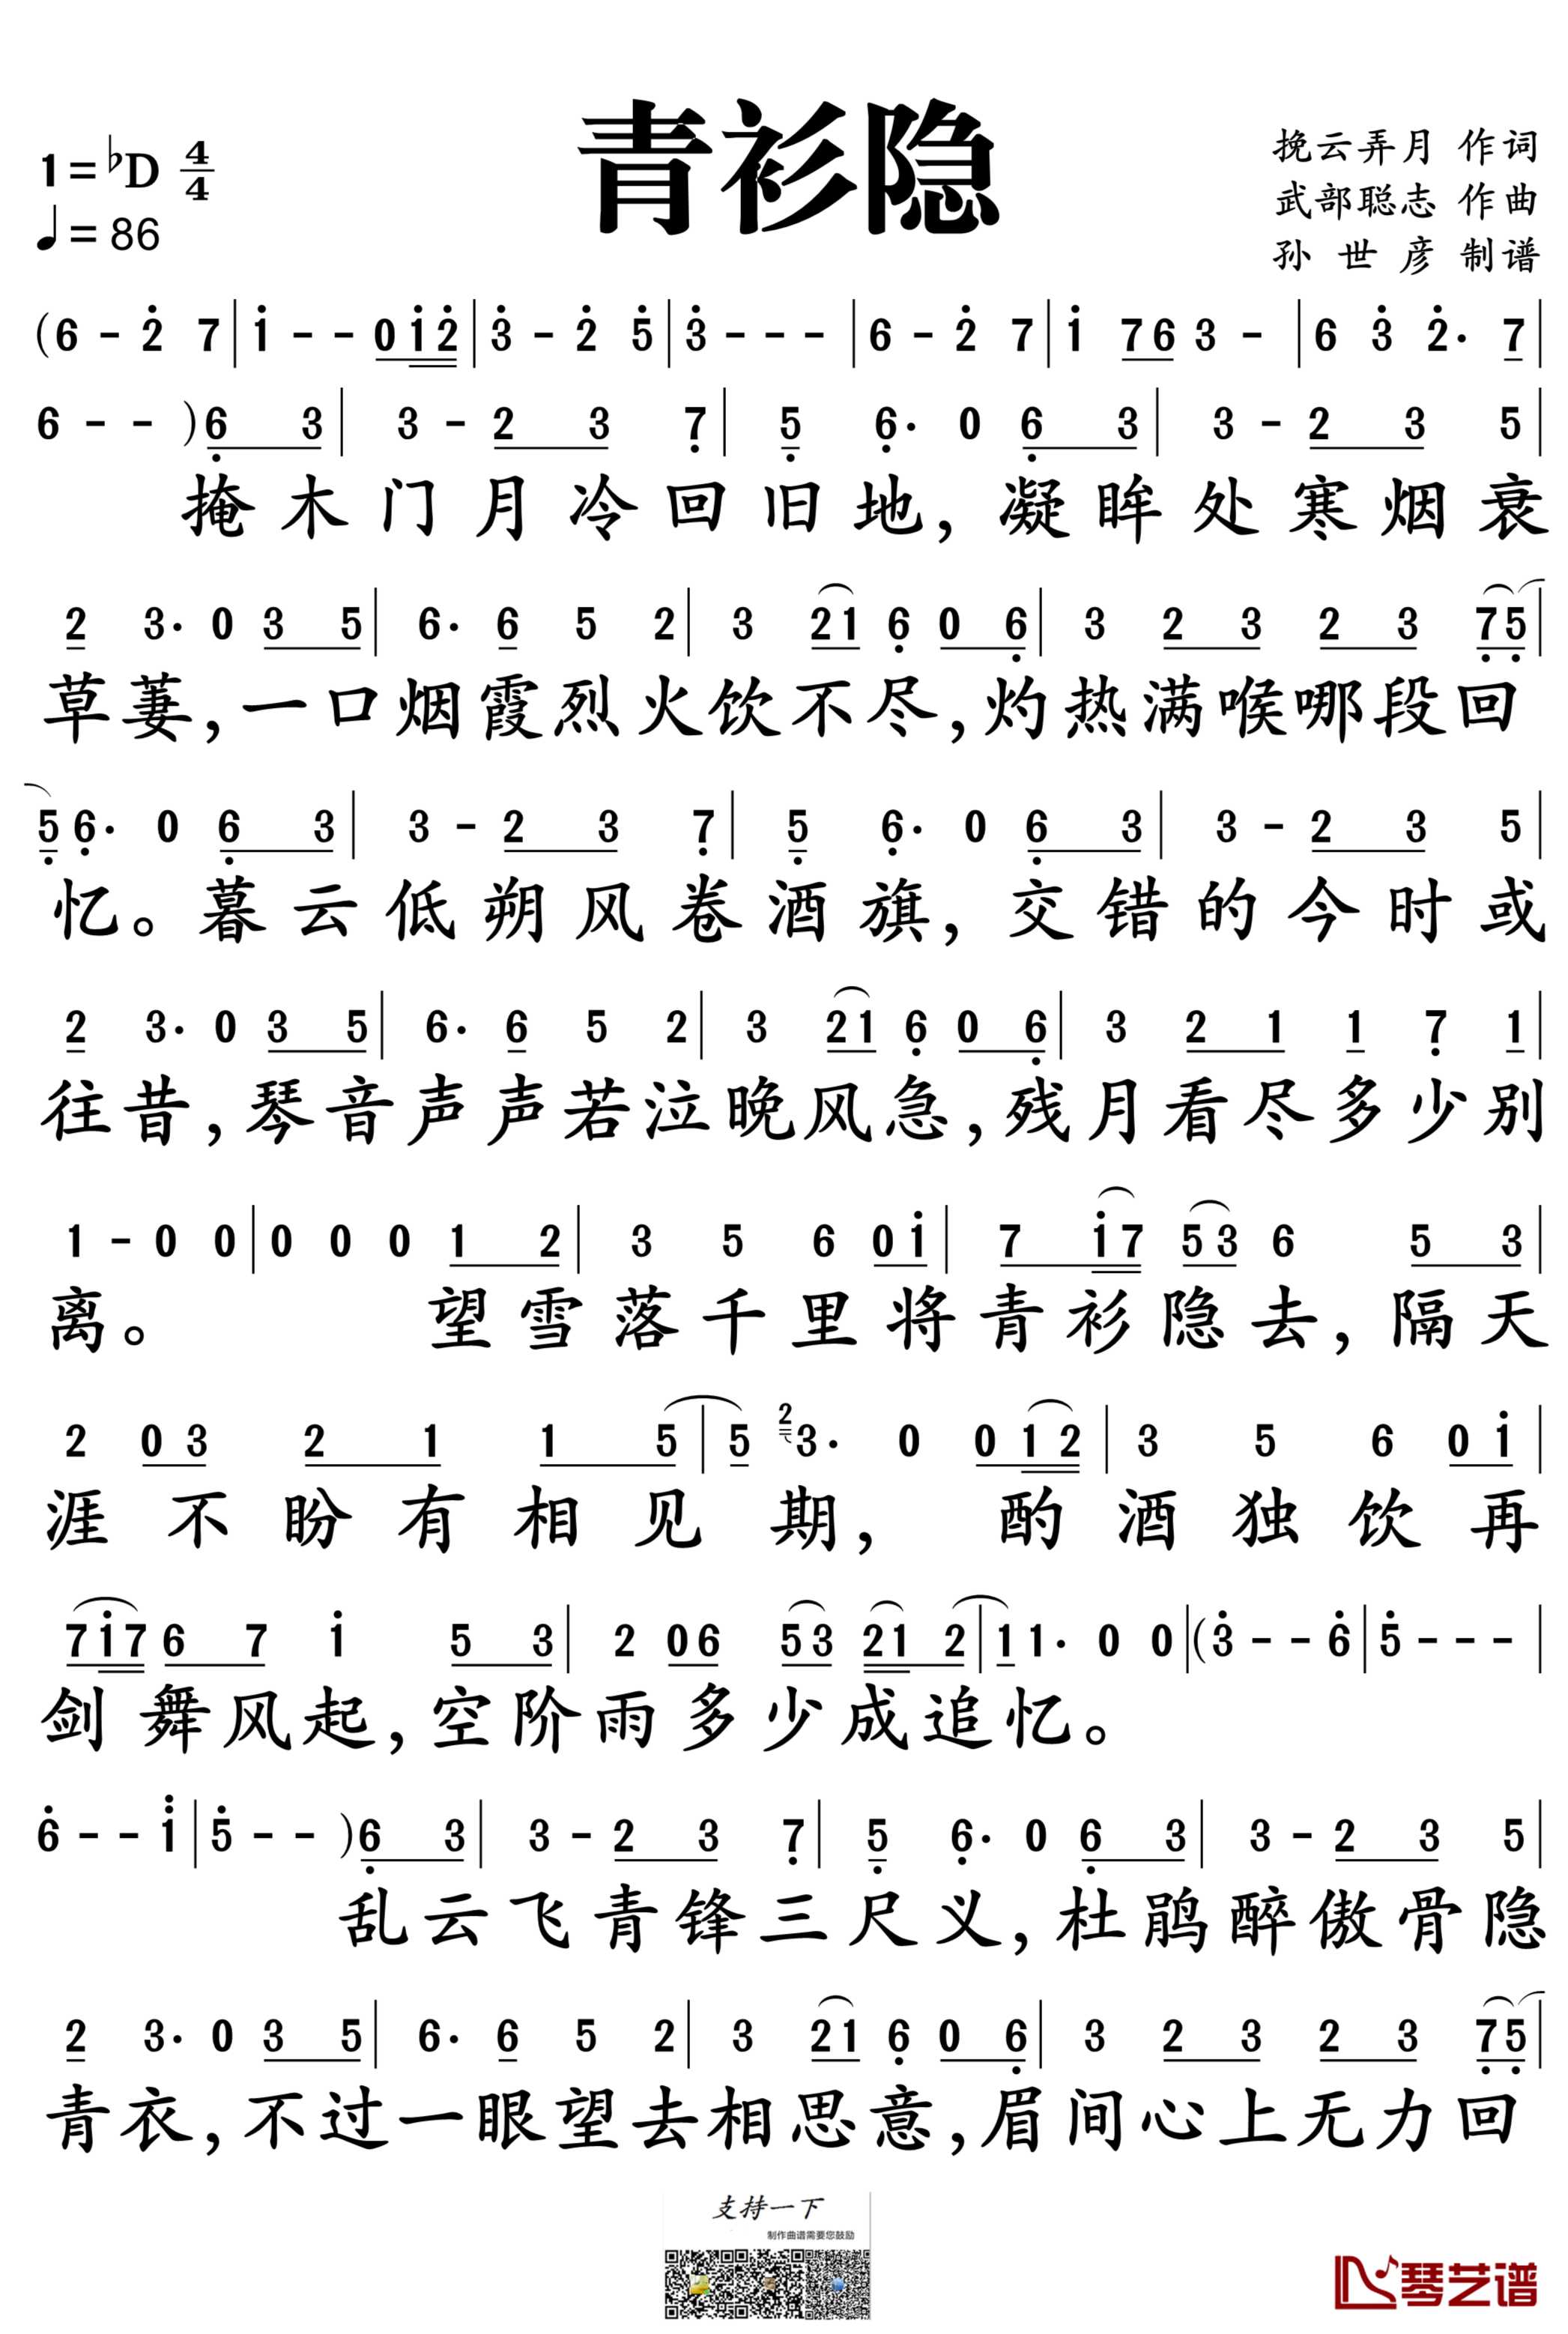 青衫隐
1=♭D 4/4
♩=86
挽云弄月 作词
武部聪志 作曲
孙世彦 制谱
(6 - 2̇ 7 | 1̇ - - 0 1̇ 2̇ | 3̇ - 2̇ 5̇ | 3̇ - - - | 6 - 2̇ 7 | 1̇ 7 6 3 - | 6 3̇ 2̇. 7 |
6 - - ) 6̣ 3 | 3 - 2 3 7̣ | 5̣ 6̣. 0 6̣ 3 | 3 - 2 3 5 |
掩木门月冷回旧地，凝眸处寒烟衰
2 3. 0 3 5 | 6. 6 5 2 | 3 2 1 6̣ 0 6̣ | 3 2 3 2 3 7̣ 5̣ |
草萋，一口烟霞烈火饮不尽，灼热满喉哪段回
5̣ 6̣. 0 6̣ 3 | 3 - 2 3 7̣ | 5̣ 6̣. 0 6̣ 3 | 3 - 2 3 5 |
忆。暮云低朔风卷酒旗，交错的今时或
2 3. 0 3 5 | 6. 6 5 2 | 3 2 1 6̣ 0 6̣ | 3 2 1 1 7̣ 1 |
往昔，琴音声声若泣晚风急，残月看尽多少别
1 - 0 0 | 0 0 0 1 2 | 3 5 6 0 1̇ | 7 1̇ 7 5 3 6 5 3 |
离。望雪落千里将青衫隐去，隔天
2 0 3 2 1 1 5 | 5 2 3. 0 0 1 2 | 3 5 6 0 1̇ |
涯不盼有相见期，酌酒独饮再
7 1̇ 7 6 7 1̇ 5 3 | 2 0 6 5 3 2 1 2 | 1 1. 0 0 | (3̇ - - 6̇ | 5̇ - - - |
剑舞风起，空阶雨多少成追忆。
6̇ - - 1̈ | 5̇ - - ) 6̣ 3 | 3 - 2 3 7̣ | 5̣ 6̣. 0 6̣ 3 | 3 - 2 3 5 |
乱云飞青锋三尺义，杜鹃醉傲骨隐
2 3. 0 3 5 | 6. 6 5 2 | 3 2 1 6̣ 0 6̣ | 3 2 3 2 3 7̣ 5̣ |
青衣，不过一眼望去相思意，眉间心上无力回
支持一下
制作曲谱需要您鼓励
琴艺谱